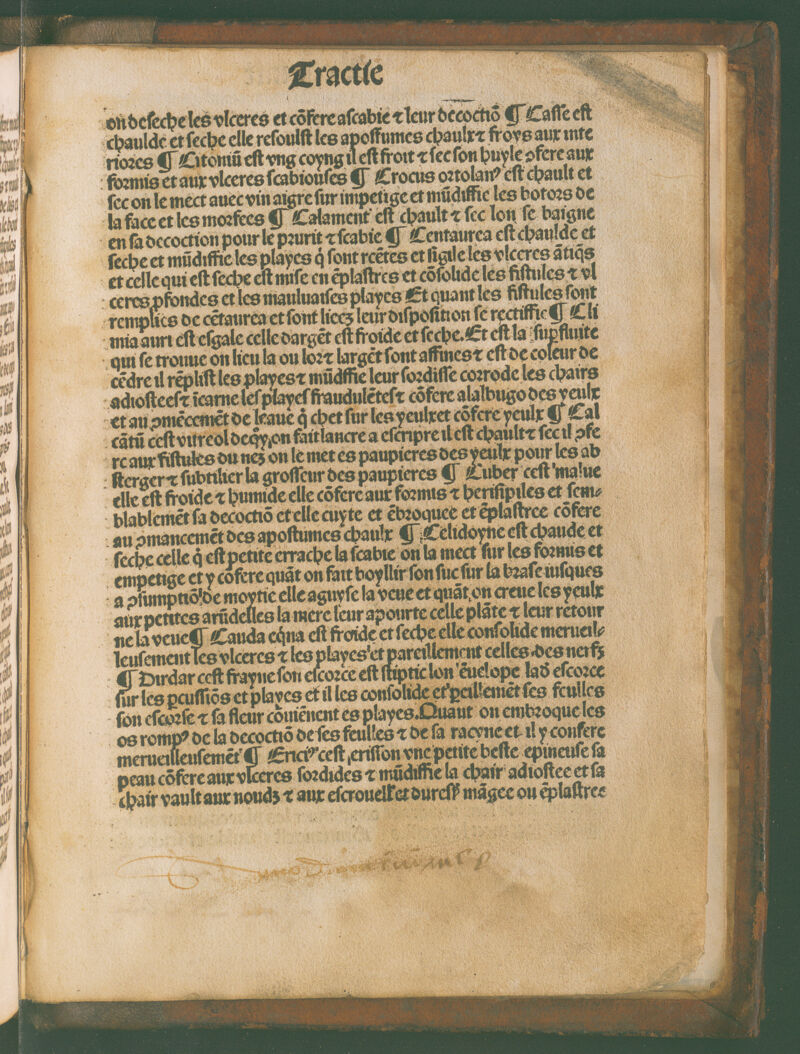 Tractie
on deseche les vlceres et cõfere a scabie ⁊ leur decoctiõ ¶ Casse est
chaulde et seche elle resoulst les apostumes chaulx ⁊ froys aux inte
riores ¶ Citoniũ est vng coyng il est froit ⁊ sec son huyle ɔfere aux
formis et aux vlceres scabiouses ¶ Crocus ortolanꝰ est chault et
sec on le mect auec vin aigre sur impetige et mũdiffie les botors de
la face et les morfees ¶ Calament est chault ⁊ sec lon se baigne
en sa decoction pour le prurit ⁊ scabie ¶ Centaurea est chaulde et
seche et mũdiffie les playes q̇ sont rcẽtes et sigile les vlceres ãtiq̃s
et celle qui est seche est mise en ẽplastres et cõsolide les fistules ⁊ vl
ceres ꝓfondes et les mauluaises playes Et quant les fistules sont
remplies de cẽtaurea et sont lieez leur disposition se rectiffie ¶ Cli
mia auri est esgale celle dargẽt est froide et seche. Et est la suꝑfluite
qui se trouue on lieu la ou lor ⁊ largẽt sont affines ⁊ est de coleur de
cẽdre il rẽplist les playes ⁊ mũdffie leur sordisse corrode les chairs
adiostees ⁊ ĩcarne les playes fraudulẽtes ⁊ cõfere al albugo des yeulx
et au ɔmẽcemẽt de leaue q̇ chet sur les yeulx et cõfere yeulx ¶ Cal
cãtũ cest vitreol de on fait lancre a escripre il est chault ⁊ sec il ɔfe
re aux fistules du nez on le met es paupieres des yeulx pour les ab
sterger ⁊ subtilier la grosseur des paupieres ¶ Cuber cest malue
elle est froide ⁊ humide elle cõfere aux formis ⁊ herisipiles et sem
blablemẽt sa decoctiõ et elle cuyte et ẽbroquee et ẽplastree cõfere
au ɔmancemẽt des apostumes chaulx ¶ Celidoyne est chaude et
seche celle q̇ est petite errache la scabie on la mect sur les formis et
empetige et y cõfere quãt on fait boyllir son suc sur la brase iusques
a ɔsumptiõ de moytie elle aguyse la veue et quãt on creue les yeulx
aux petites arũdelles la mere leur apourte celle plãte ⁊ leur retour
ne la veue ¶ Cauda eq̃na est froide et seche elle consolide merueil
leusement les vlceres ⁊ les playes et pareillement celles des nerfz
¶ Dirdar cest frayne son escorce est stiptic lon ẽuelope lad escorce
sur les ꝑcussiõs et playes et il les consolide et ꝑeillemẽt ses feulles
son escorse ⁊ sa fleur cõuiẽnent es playes. Quant on embroque les
os rompꝰ de la decoctiõ de ses feulles ⁊ de sa racyne et il y confere
merueilleusemẽt ¶ Ericiꝰ cest erisson vne petite beste epineuse sa
peau cõfere aux vlceres sordides ⁊ mũdiffie la chair adiostee et sa
chair vault aux noudz ⁊ aux escrouell et mãgee ou ẽplastree